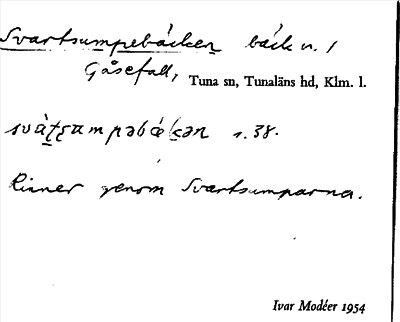 Svartsumpebäcken bäck n. 1
Gåsefall, Tuna sn, Tunaläns hd, Klm. l.
s. 38.
Rinner genom Svartsumparna.
Ivar Modéer 1954